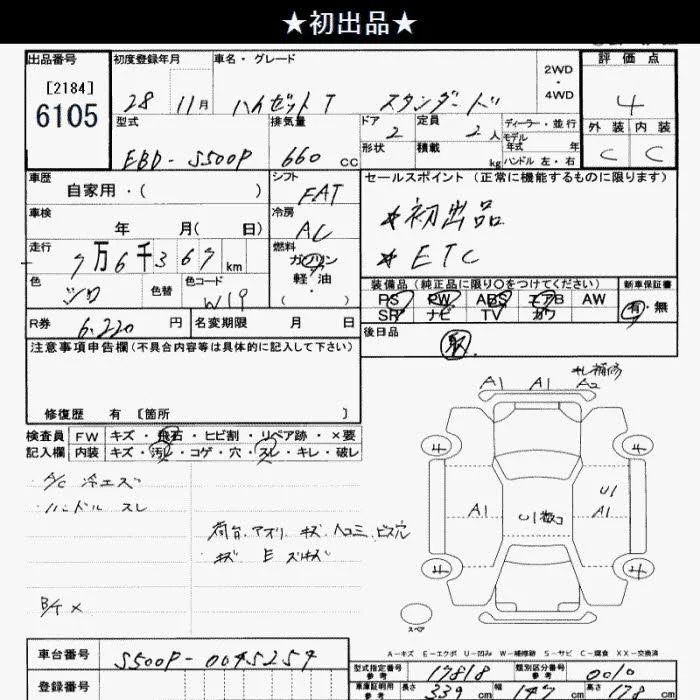 ★初出品★
出品番号
[2184]
6105
初度登録年月
28 11月
車名・グレード
ハイゼット T スタンダード
2WD
・
4WD
評価点
4
外装 内装
C C
型式
EBD-S500P
排気量
660 cc
ドア
2
定員
2人
ディーラー・並行
モデル
年式 年
形状
積載
kg
ハンドル 左・右
車歴
自家用・( )
シフト
FAT
セールスポイント (正常に機能するものに限ります)
*初出品
*ETC
車検
年 月( 日)
冷房
AC
走行
7万6千367km
燃料
ガソリン
軽・油
・
( )
色
シロ
色替
色コード
W19
装備品 (純正品に限り○をつけてください)
新車保証書
PS PW ABS エアB AW
SR ナビ TV カワ
有・無
R券 6.220 円
名変期限 月 日
後日品
取
注意事項申告欄 (不具合内容等は具体的に記入して下さい)
修復歴 有 [箇所 ]
検査員
記入欄
FW キズ・飛石・ヒビ割・リペア跡・×要
内装 キズ・汚・コゲ・穴・スレ・キレ・破レ
A/C 冷エズ
ハンドル スレ
荷台、アオリ キズ ヘコミ、ビス穴
キズ
B/T ×
キレ補修
A1 A1 A2
4 4
A1
U1
A1
4 4
スペア
A-キズ E-エクボ U-凹み W-補修跡 S-サビ C-腐食 XX-交換済
車台番号
S500P-0045254
登録番号
型式指定番号
参考
17818
類別区分番号
参考
0010
車庫証明用
参考
長さ 339 cm 幅 147 cm 高さ 178 cm